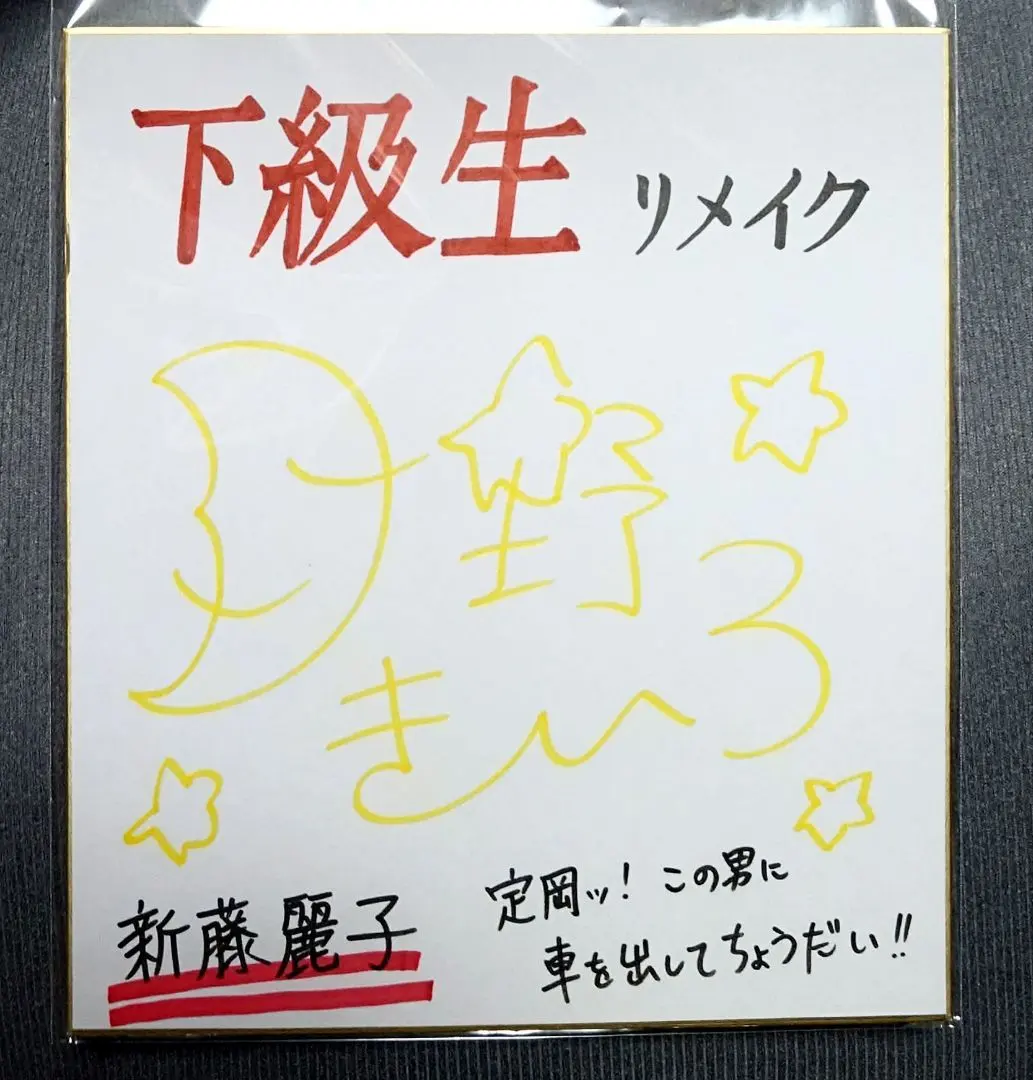 下級生 リメイク
月野
きいろ
新藤麗子
定岡ッ！この男に
車を出してちょうだい!!